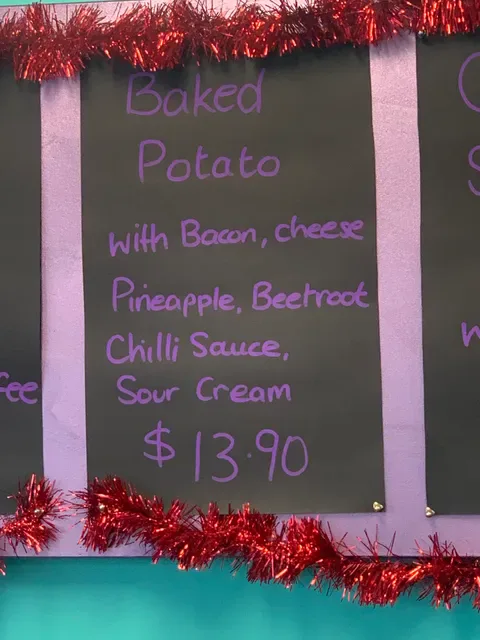 Baked
Potato
with Bacon, cheese
Pineapple, Beetroot
Chilli Sauce,
Sour Cream
$13.90